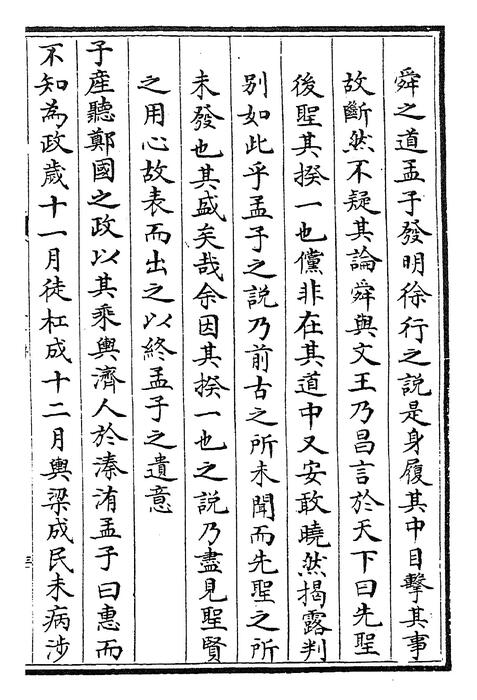 舜之道孟子發明徐行之說是身履其中目擊其事
故斷然不疑其論舜與文王乃昌言於天下曰先聖
後聖其揆一也儻非在其道中又安敢曉然揭露判
別如此乎孟子之說乃前古之所未聞而先聖之所
未發也其盛矣哉余因其揆一也之說乃盡見聖賢
之用心故表而出之以終孟子之遺意
子產聽鄭國之政以其乘輿濟人於溱洧孟子曰惠而
不知為政歲十一月徒杠成十二月輿梁成民未病涉